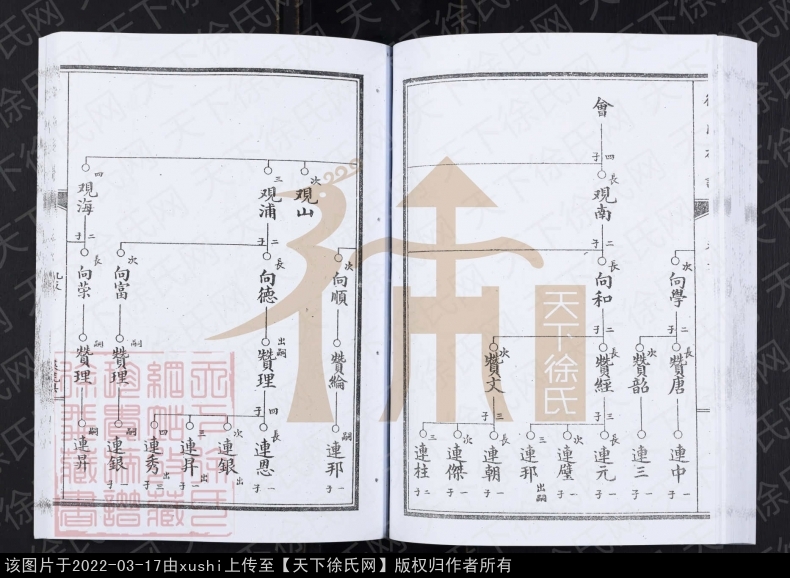 會
四子
長 觀南
二子
次 向學
二子
長 向和
二子
長 贊唐
次 贊韶
長 贊經
三子
次 贊文
三子
連中 一子
連三 一子
長 連元 一子
次 連璧 一子
三 連珶 出嗣
長 連朝 一子
次 連傑 一子
三 連柱 二子
次 觀山
三 觀浦
二子
四 觀海
二子
次 向順
長 向德
次 向富
長 向榮
贊綸
出嗣 贊理
四子
嗣 贊理
嗣 贊理
嗣 連珶 一子
長 連恩 一子
次 連銀 出
三 連昇 出 一子
四 連秀 出 三子
嗣 連銀 一子
嗣 連昇
天下徐氏
天下徐氏网
该图片于2022-03-17由xushi上传至【天下徐氏网】版权归作者所有